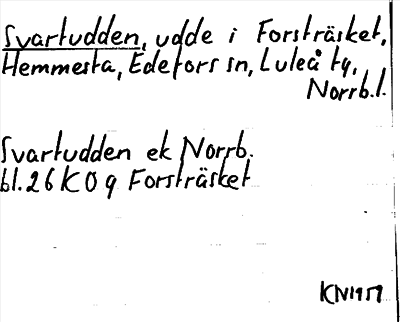 Svartudden, udde i Forsträsket,
Hemmesta, Edefors sn, Luleå ty,
Norrb.l.
Svartudden ek Norrb.
bl.26 K 0 g Forsträsket